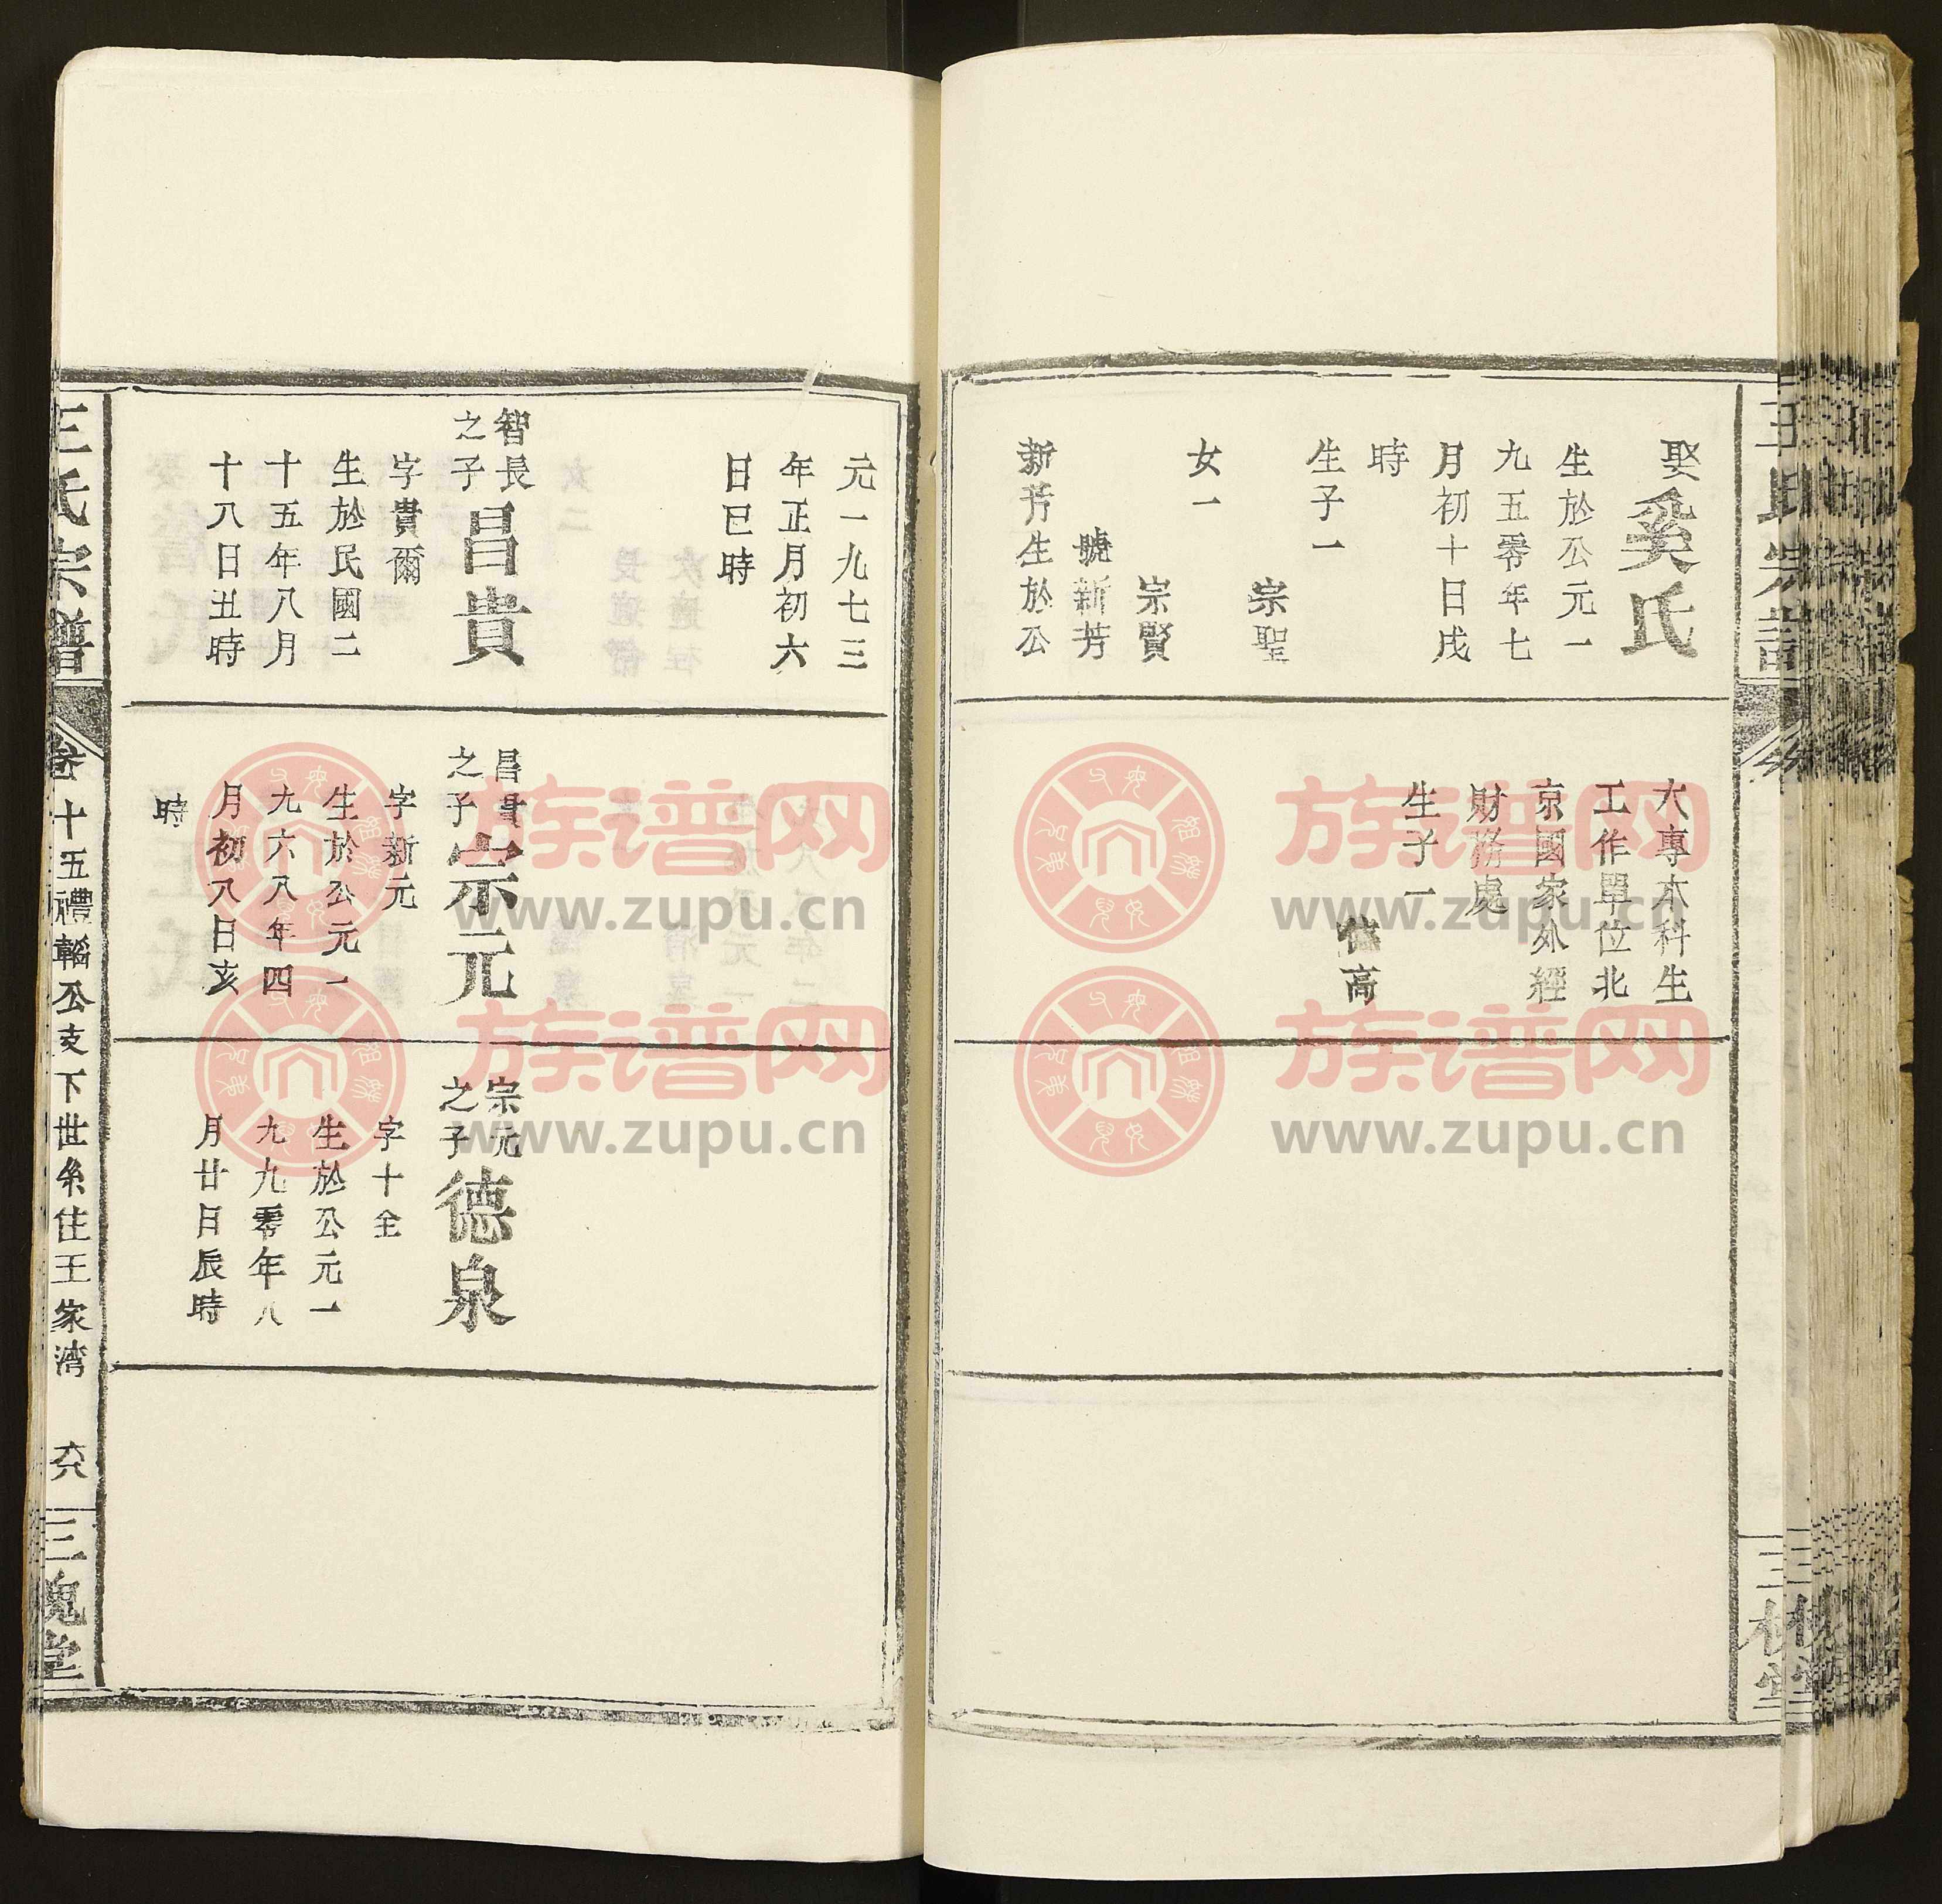 王氏宗譜
娶奚氏
生於公元一
九五零年七
月初十日戌
時
生子一
宗聖
女一
宗賢
號新芳
新芳生於公
大專本科生
工作單位北
京國家外經
財務處
生子一
高
三槐堂
元一九七三
年正月初六
日巳時
智長
之子
昌貴
字貴爾
生於民國二
十五年八月
十八日丑時
昌貴
之子
宗元
字新元
生於公元一
九六八年四
月初八日亥
時
宗元
之子
德泉
字十全
生於公元一
九九零年八
月廿日辰時
王氏宗譜
卷十五禮輶公支下世系住王家湾
六八
三槐堂
族谱网
www.zupu.cn
族谱网
www.zupu.cn
族谱网
www.zupu.cn
族谱网
www.zupu.cn